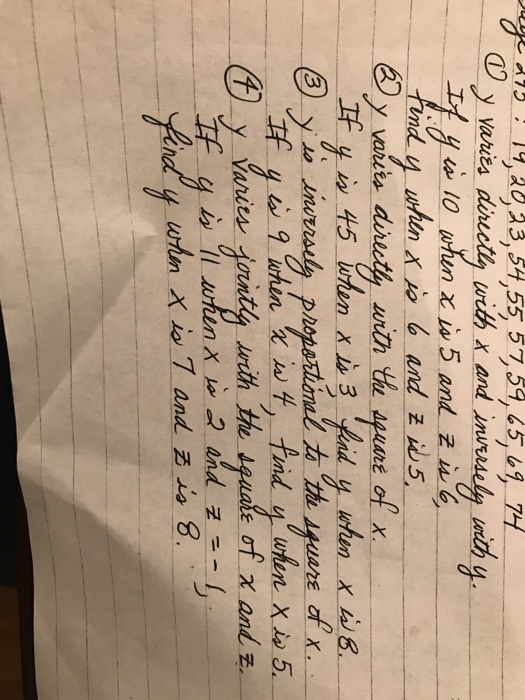 275: 19, 20, 23, 54, 55, 57, 59, 65, 69, 74
① y varies directly with x and inversely with y.
If y is 10 when x is 5 and z is 6,
find y when x is 6 and z is 5.
② y varies directly with the square of x.
If y is 45 when x is 3 find y when x is 8.
③ y is inversely proportional to the square of x.
If y is 9 when x is 4, find y when x is 5.
④ y varies jointly with the square of x and z.
If y is 11 when x is 2 and z = -1,
find y when x is 7 and z is 8.